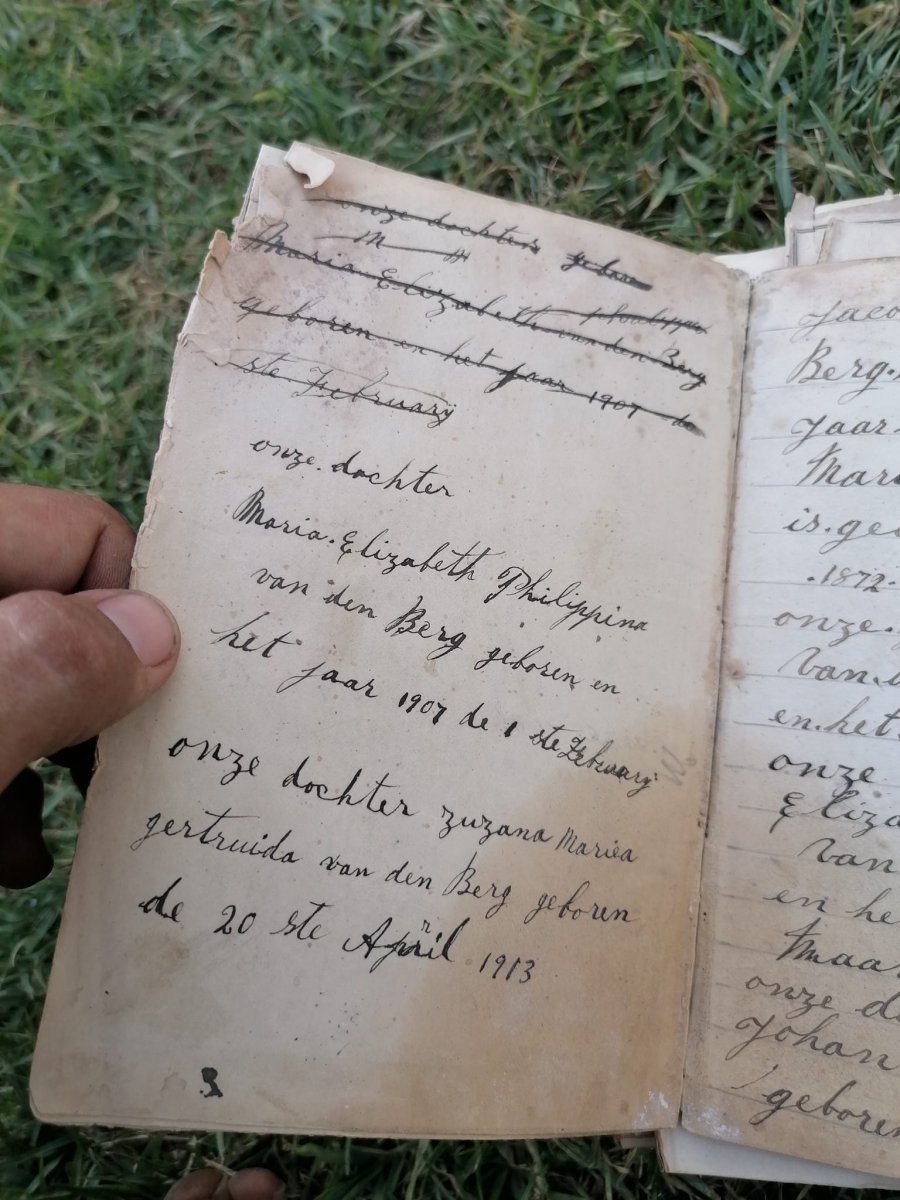 onze dochter geboren
M
Maria Elizabeth van den Berg
geboren en het jaar 1907 de
ste February
onze. dochter
Maria. Elizabeth Philippina
van den Berg geboren en
het jaar 1907 de 1 ste February
onze dochter zuzana Maria
gertruida van den Berg geboren
de 20 ste April 1913
Jaco
Berg.
Jaar
Mar
is. ge
.1872.
onze.
van.
en. het
onze
Eliza
van
en he
Maa
onze d
Johan
geboren